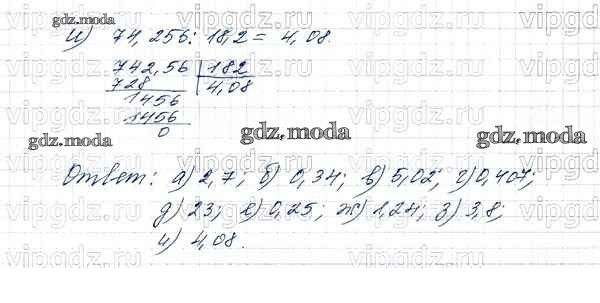 и) 74,256 : 18,2 = 4,08.
742,56 | 182
728 | 4,08
1456
1456
0
Ответ: а) 2,7; б) 0,34; в) 5,02; г) 0,407;
д) 23; е) 0,25; ж) 1,24; з) 3,8;
и) 4,08.
gdz.moda
gdz.moda
gdz.moda
gdz.moda
vipgdz.ru